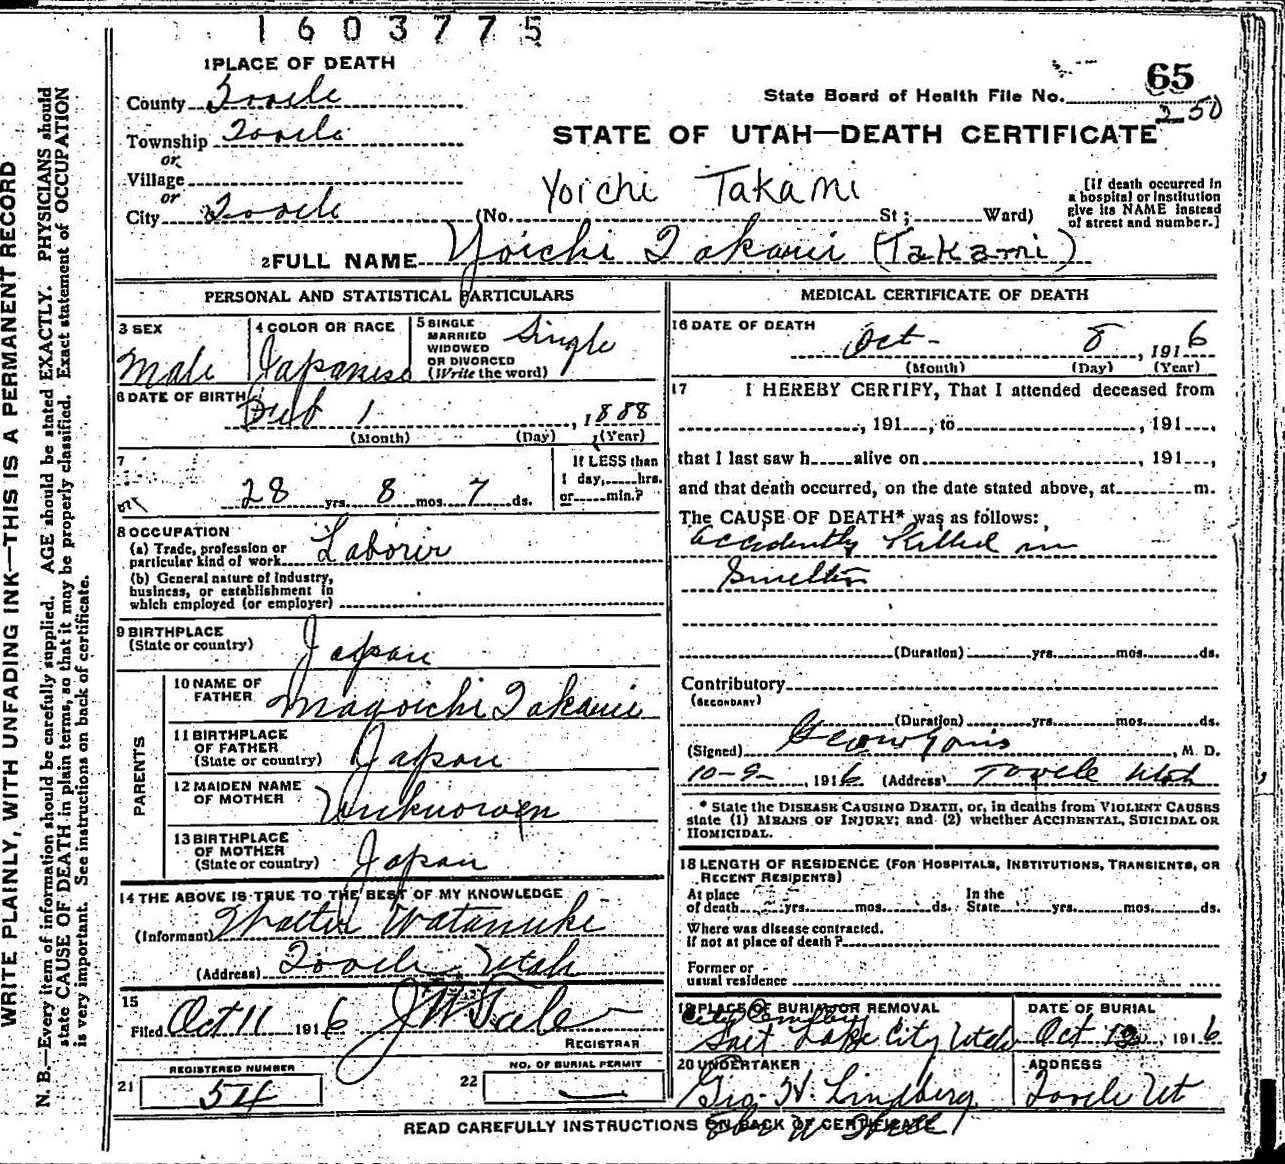 1603775
1 PLACE OF DEATH
65
County Tooele
State Board of Health File No. 250
Township Tooele
STATE OF UTAH—DEATH CERTIFICATE
or
Village
or
Yoichi Takami
[If death occurred in a hospital or institution give its NAME instead of street and number.]
City Tooele (No. St; Ward)
2 FULL NAME Yoichi Takami (Takami)
PERSONAL AND STATISTICAL PARTICULARS
3 SEX
Male
4 COLOR OR RACE
Japanese
5 SINGLE
MARRIED
WIDOWED
OR DIVORCED
(Write the word)
Single
6 DATE OF BIRTH
1, 1888
(Month) (Day) (Year)
7
28 yrs. 8 mos. 7 ds.
If LESS than
1 day, hrs.
or min.?
8 OCCUPATION
(a) Trade, profession or
particular kind of work Laborer
(b) General nature of Industry,
business, or establishment in
which employed (or employer)
9 BIRTHPLACE
(State or country) Japan
PARENTS
10 NAME OF
FATHER Magoichi Takami
11 BIRTHPLACE
OF FATHER
(State or country) Japan
12 MAIDEN NAME
OF MOTHER Unknowen
13 BIRTHPLACE
OF MOTHER
(State or country) Japan
14 THE ABOVE IS TRUE TO THE BEST OF MY KNOWLEDGE
(Informant) Walter Watanuke
(Address) Tooele Utah
15
Filed Oct 11 1916
REGISTRAR
REGISTERED NUMBER
21 54
NO. OF BURIAL PERMIT
22 —
MEDICAL CERTIFICATE OF DEATH
16 DATE OF DEATH
Oct- 8, 1916
(Month) (Day) (Year)
17 I HEREBY CERTIFY, That I attended deceased from
, 191 , to , 191 ,
that I last saw h alive on , 191 ,
and that death occurred, on the date stated above, at m.
The CAUSE OF DEATH* was as follows:
accidently killed in
Smelter
(Duration) yrs. mos. ds.
Contributory
(SECONDARY)
(Duration) yrs. mos. ds.
(Signed) , M. D.
10-9-, 1916 (Address) Tooele Utah
* State the DISEASE CAUSING DEATH, or, in deaths from VIOLENT CAUSES
state (1) MEANS OF INJURY; and (2) whether ACCIDENTAL, SUICIDAL OR
HOMICIDAL.
18 LENGTH OF RESIDENCE (FOR HOSPITALS, INSTITUTIONS, TRANSIENTS, OR
RECENT RESIDENTS)
At place
of death yrs. mos. ds.
In the
State yrs. mos. ds.
Where was disease contracted.
If not at place of death?
Former or
usual residence
19 PLACE OF BURIAL OR REMOVAL
City Cemetery
Salt Lake City Utah
DATE OF BURIAL
Oct 1916
20 UNDERTAKER
Geo. H. Lindberg
ADDRESS
Tooele Ut
READ CAREFULLY INSTRUCTIONS ON BACK OF CERTIFICATE
WRITE PLAINLY, WITH UNFADING INK—THIS IS A PERMANENT RECORD
N. B.—Every item of information should be carefully supplied. AGE should be stated EXACTLY. PHYSICIANS should
state CAUSE OF DEATH in plain terms, so that it may be properly classified. Exact statement of OCCUPATION
is very important. See instructions on back of certificate.